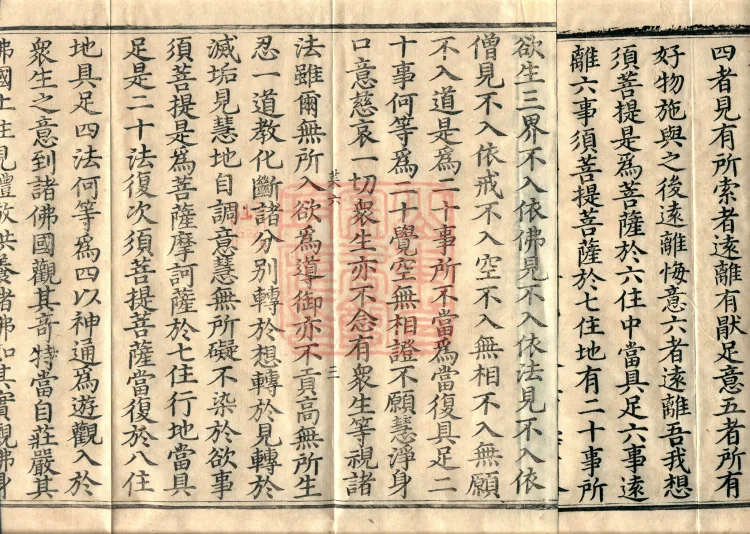 四者見有所索者遠離有猒足意五者所有
好物施與之後遠離悔意六者遠離吾我想
須菩提是爲菩薩於六住中當具足六事遠
離六事須菩提菩薩於七住地有二十事所
欲生三界不入依佛見不入依法見不入依
僧見不入依戒不入空不入無相不入無願
不入道是爲二十事所不當爲當復具足二
十事何等爲二十覺空無相證不願慧淨身
口意慈哀一切衆生亦不念有衆生等視諸
法雖爾無所入欲爲導御亦不貢高無所生
忍一道教化斷諸分别轉於想轉於見轉於
滅垢見慧地自調意慧無所礙不染於欲事
須菩提是爲菩薩摩訶薩於七住行地當具
足是二十法復次須菩提菩薩當復於八住
地具足四法何等爲四以神通爲遊觀入於
衆生之意到諸佛國觀其奇特當自莊嚴其